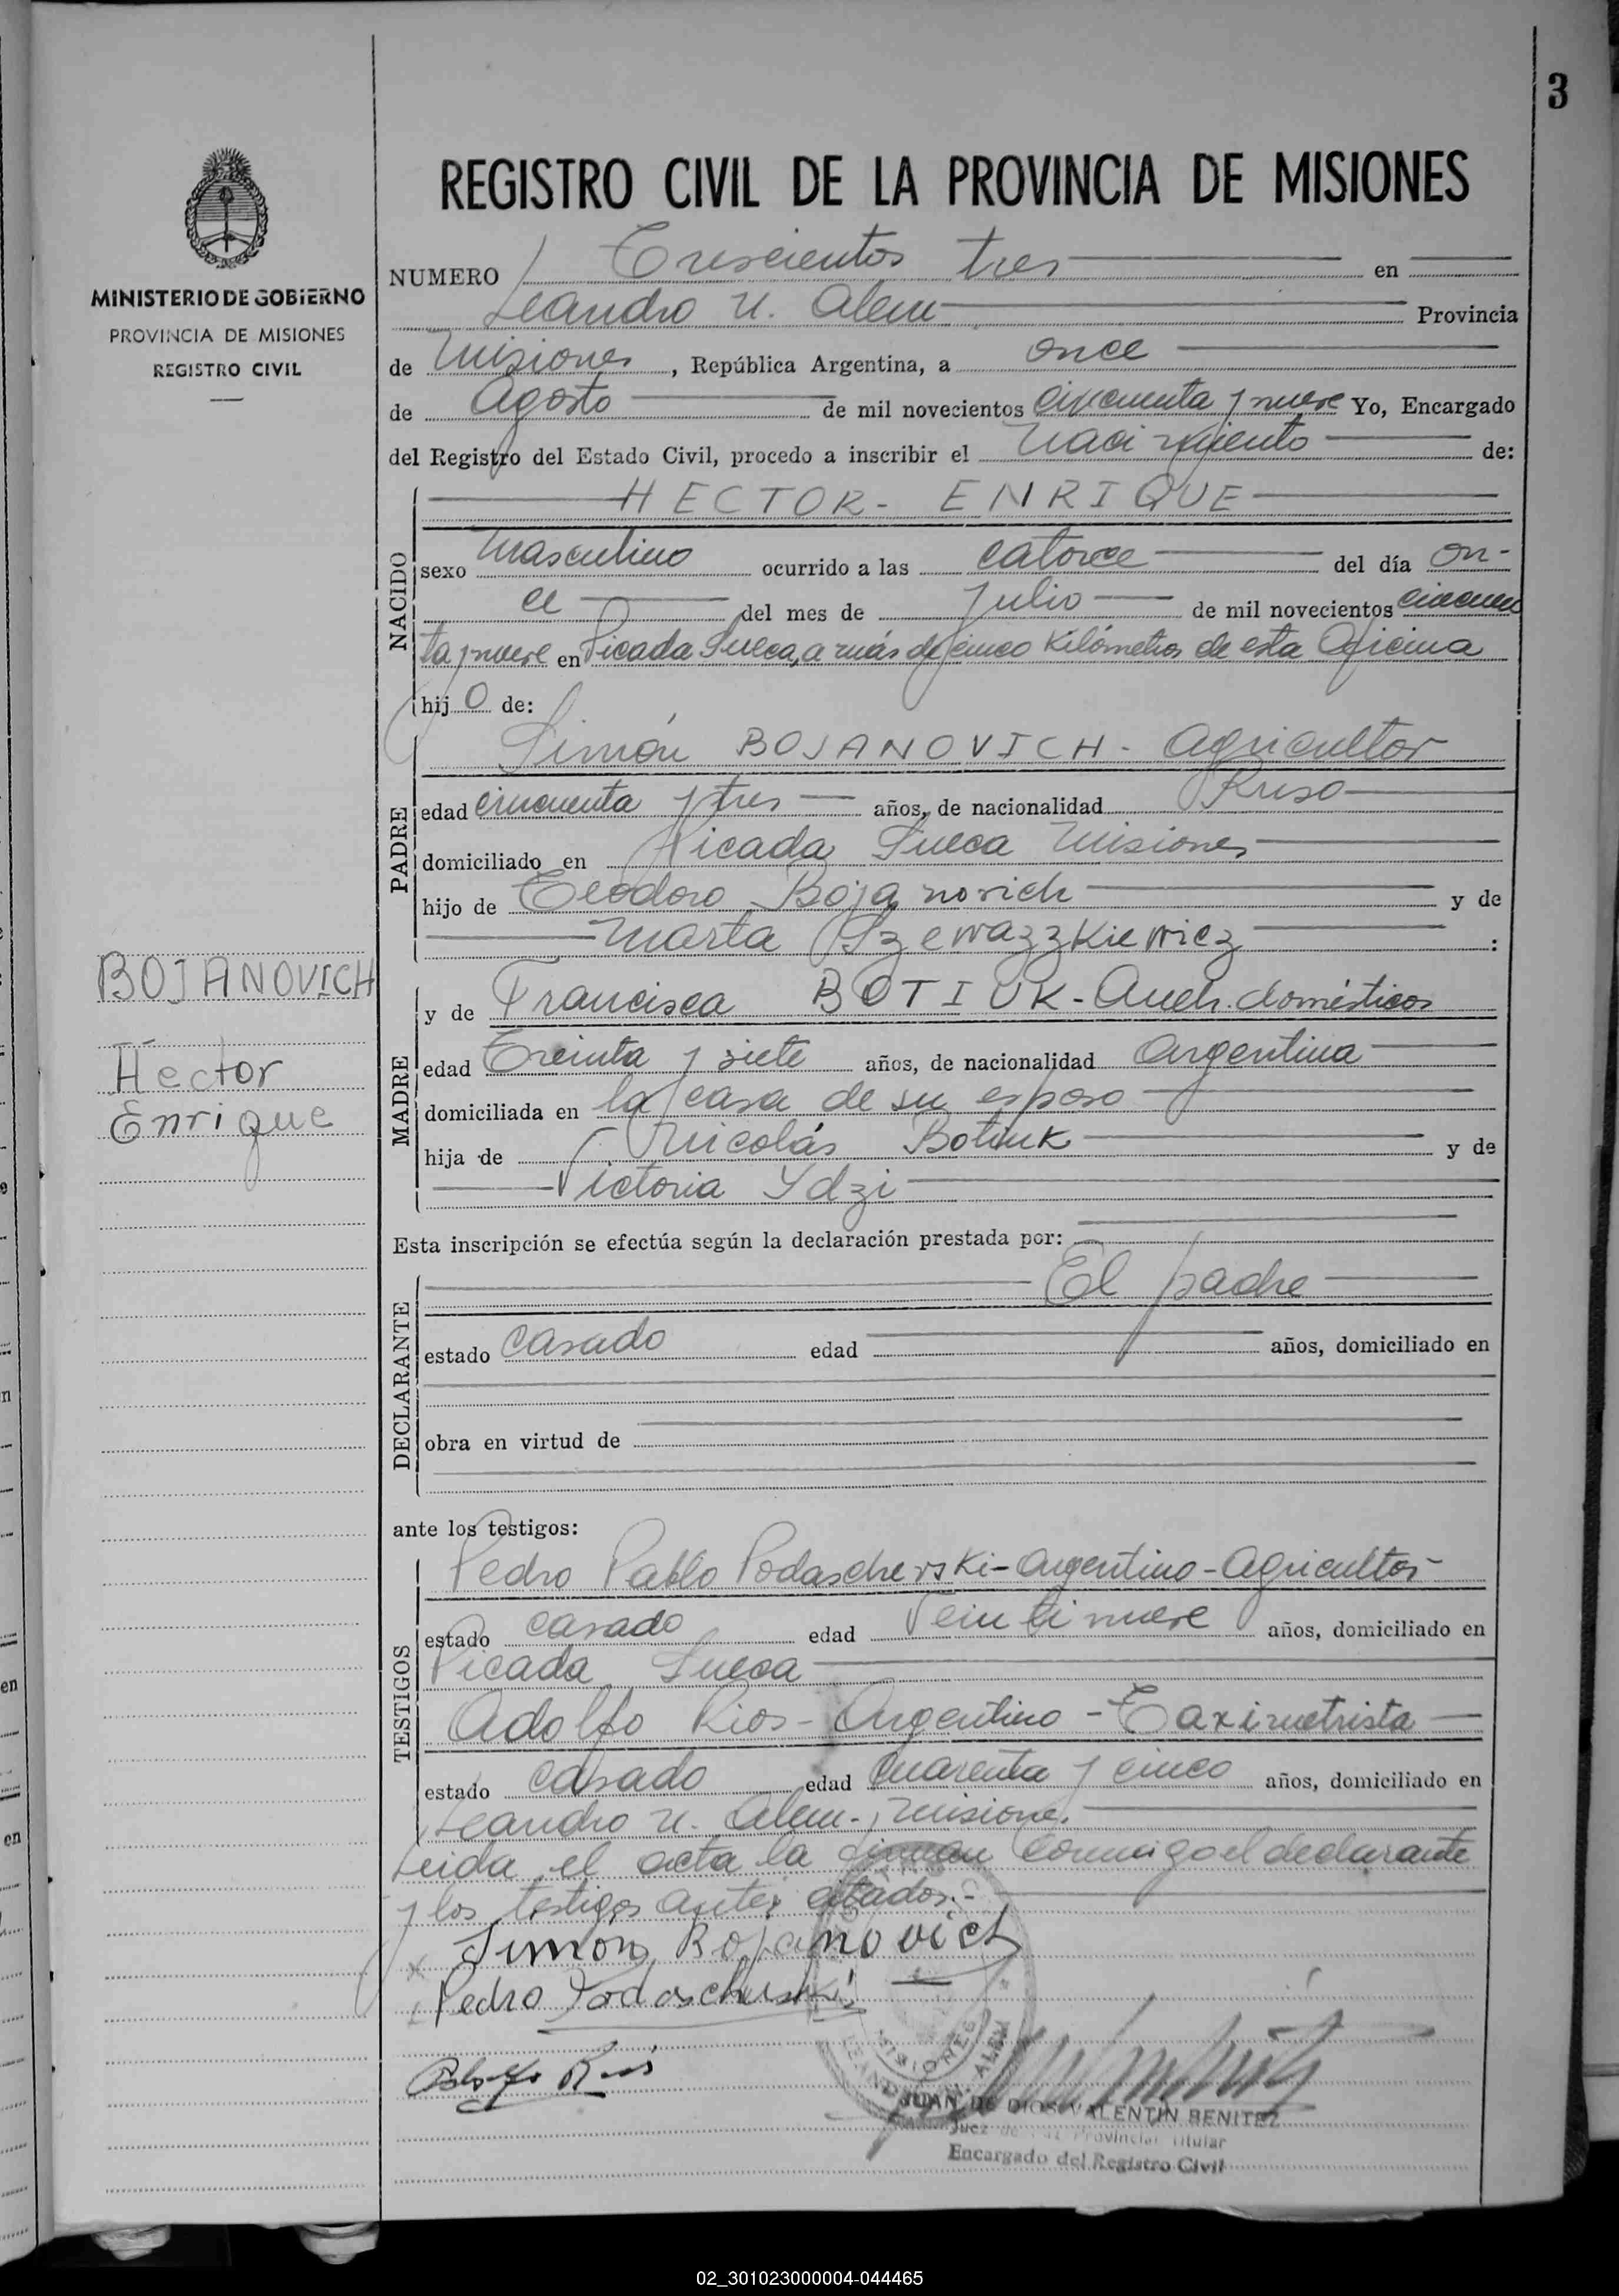 3
REGISTRO CIVIL DE LA PROVINCIA DE MISIONES
MINISTERIO DE GOBIERNO
PROVINCIA DE MISIONES
REGISTRO CIVIL
NUMERO Trescientos tres en
Leandro N. Alem Provincia
de Misiones, República Argentina, a once
de Agosto de mil novecientos cincuenta y nueve Yo, Encargado
del Registro del Estado Civil, procedo a inscribir el Nacimiento de:
NACIDO
HECTOR- ENRIQUE
sexo Masculino ocurrido a las catorce del día on-
ce del mes de Julio de mil novecientos cincuen
ta y nueve en Picada Sueca, a más de cinco Kilómetros de esta Oficina
hijo de:
PADRE
Simón BOJANOVICH- Agricultor
edad cincuenta y tres años, de nacionalidad Ruso
domiciliado en Picada Sueca Misiones
hijo de Teodoro Bojanovich y de
Marta Szewazzkiewicz :
BOJANOVICH
Hector
Enrique
MADRE
y de Francisca BOTIUK- Queh. domésticos
edad Treinta y siete años, de nacionalidad Argentina
domiciliada en la casa de su esposo
hija de Nicolás Botiuk y de
Victoria Ydzi
Esta inscripción se efectúa según la declaración prestada por:
DECLARANTE
El padre
estado casado edad años, domiciliado en
obra en virtud de
ante los testigos:
TESTIGOS
Pedro Pablo Podascherski- Argentino- Agricultor-
estado casado edad Veintinueve años, domiciliado en
Picada Sueca
Adolfo Rios- Argentino - Taximetrista
estado casado edad Cuarenta y cinco años, domiciliado en
Leandro N. Alem.- Misiones.
Leida el acta la firman conmigo el declarante
y los testigos antes citados.-
x Simon Bojanovich
Pedro Podascherski
Adolfo Rios
MISIONES
LEANDRO N. ALEM
JUAN DE DIOS VALENTIN BENITEZ
Juez de Paz Provincial Titular
Encargado del Registro Civil
02_301023000004-044465